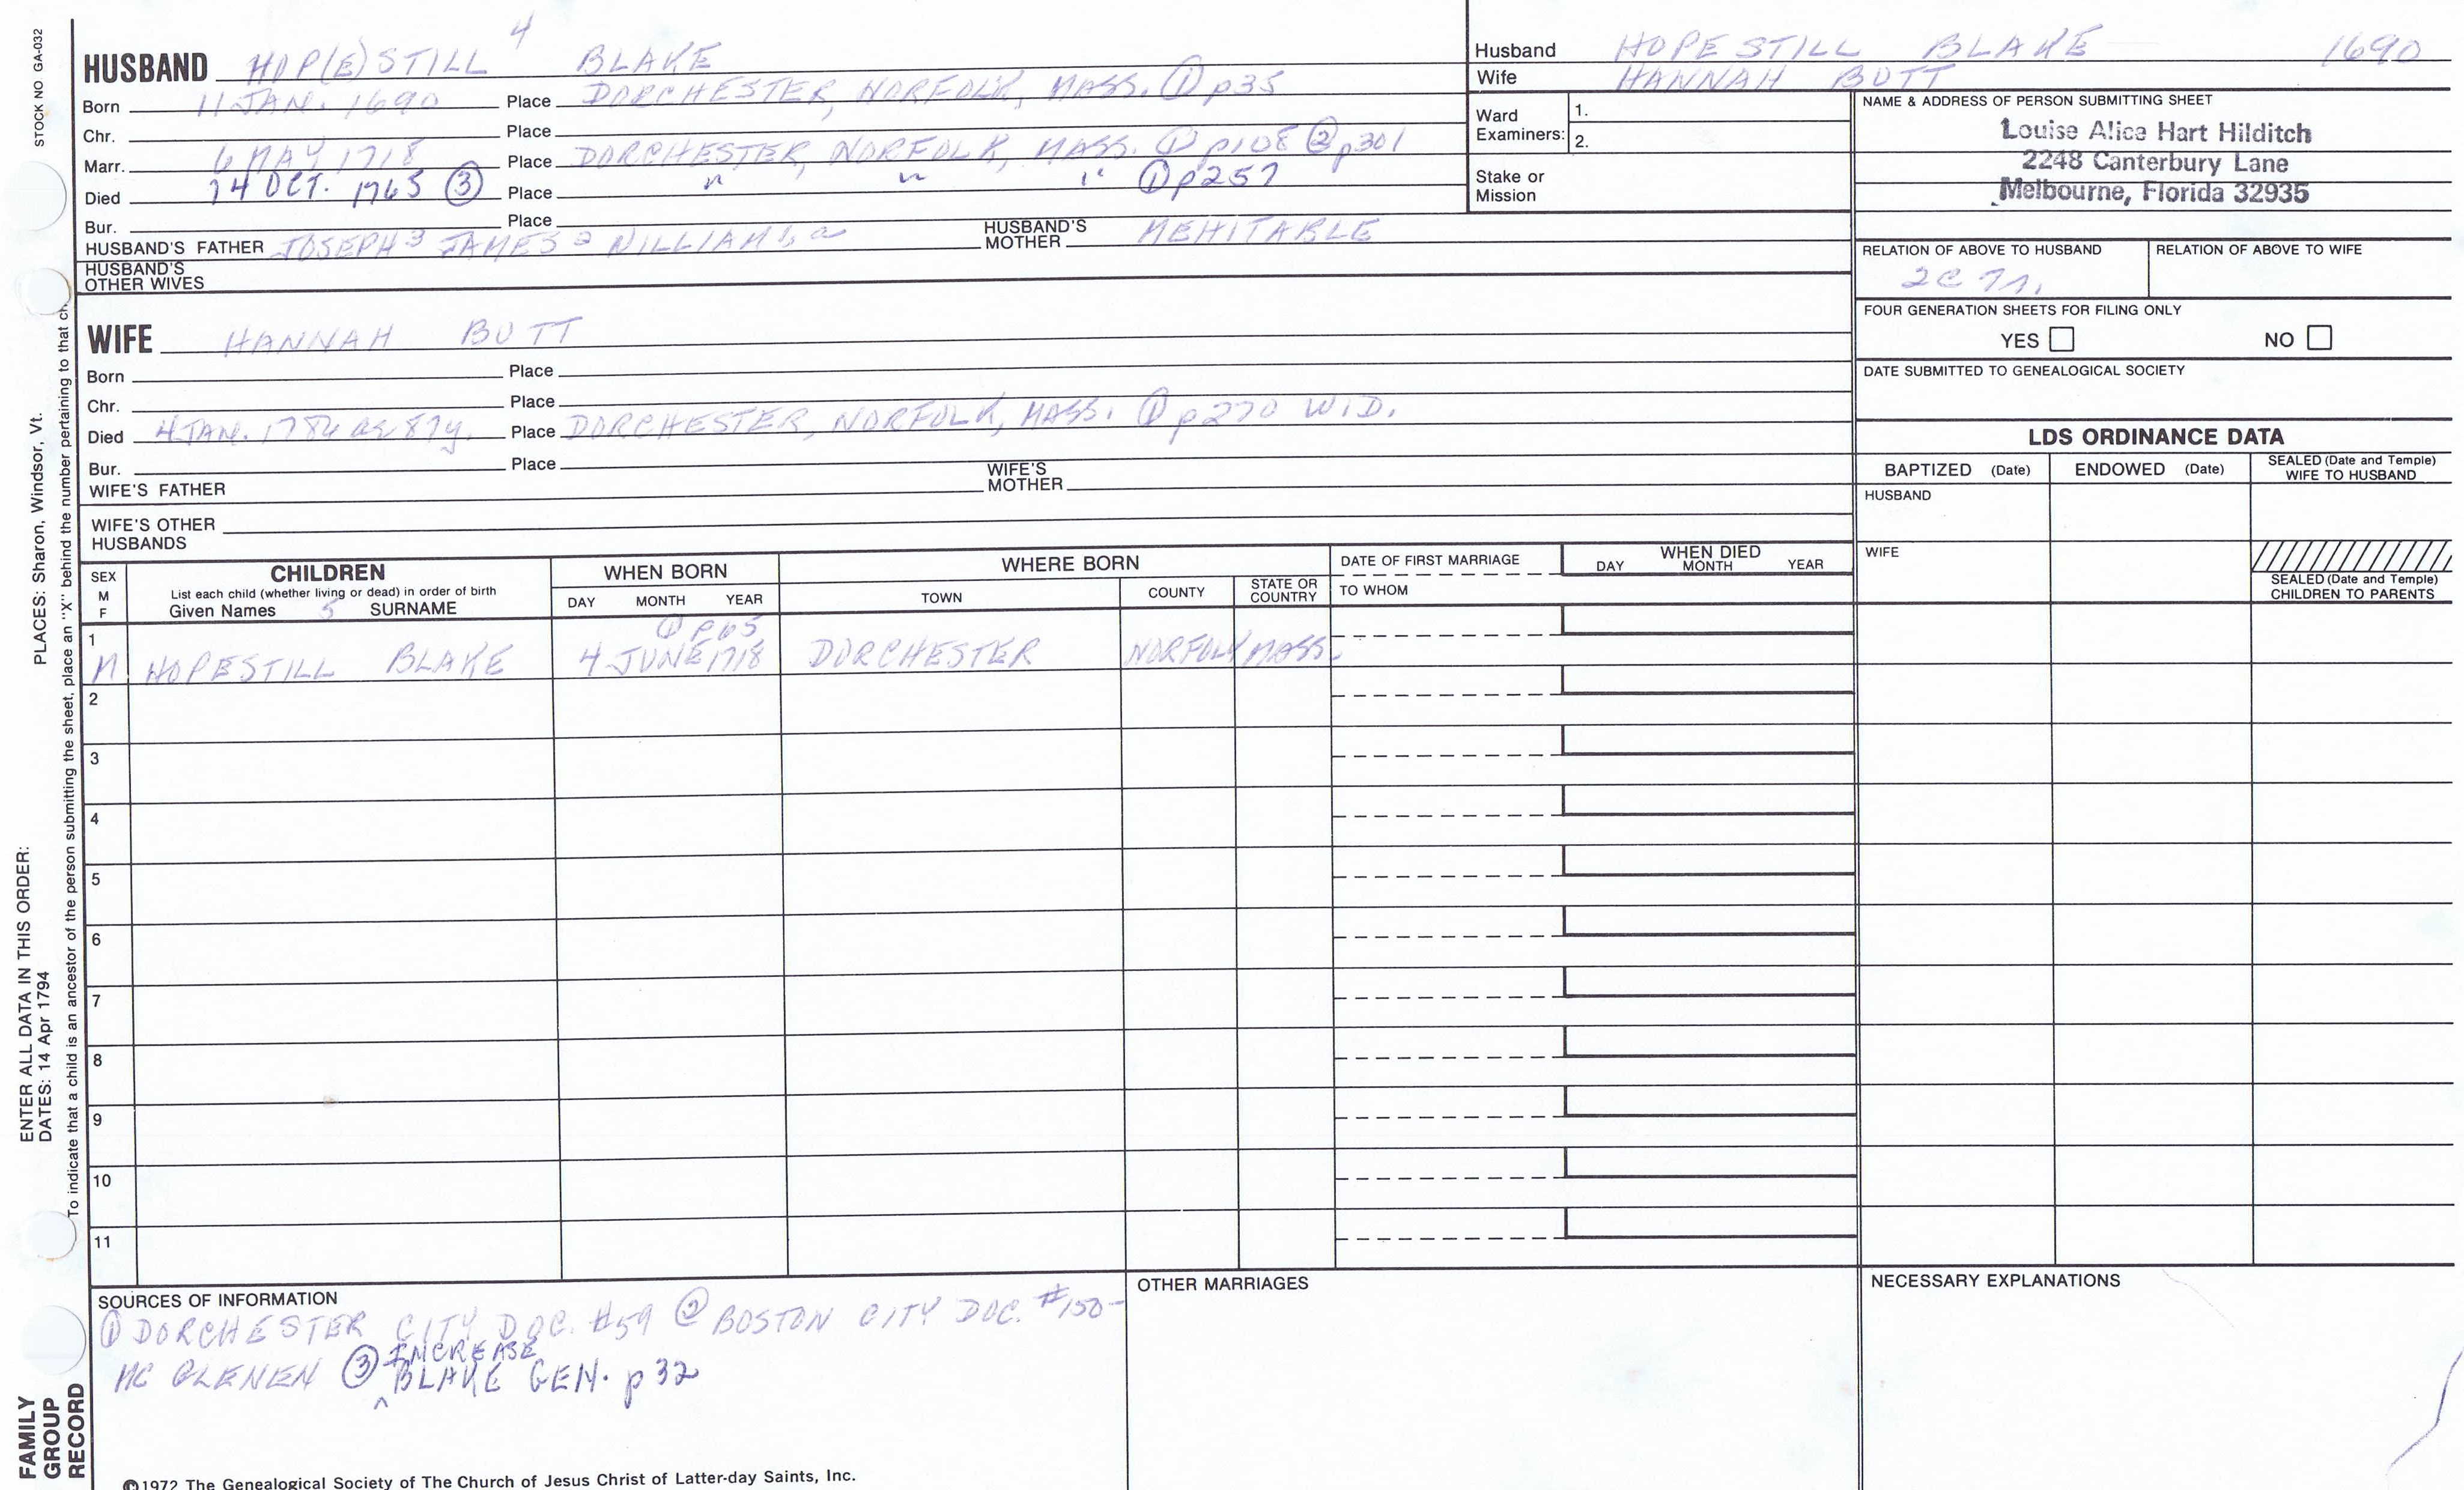 STOCK NO GA-032
HUSBAND HOP(E)STILL 4 BLAKE
Born 11 JAN. 1690 Place DORCHESTER, NORFOLK, MASS. ① p35
Chr. Place
Marr. 6 MAY 1718 Place DORCHESTER, NORFOLK, MASS. ① p108 ② p301
Died 14 OCT. 1765 ③ Place " " " ① p257
Bur. Place
HUSBAND'S FATHER JOSEPH 3 JAMES 2 WILLIAM 1, a HUSBAND'S MOTHER MEHITABLE
HUSBAND'S OTHER WIVES
Husband HOPESTILL BLAKE 1690
Wife HANNAH BUTT
Ward Examiners: 1.
2.
Stake or Mission
NAME & ADDRESS OF PERSON SUBMITTING SHEET
Louise Alice Hart Hilditch
2248 Canterbury Lane
Melbourne, Florida 32935
RELATION OF ABOVE TO HUSBAND RELATION OF ABOVE TO WIFE
2C 7r.
FOUR GENERATION SHEETS FOR FILING ONLY
YES NO
DATE SUBMITTED TO GENEALOGICAL SOCIETY
WIFE HANNAH BUTT
Born Place
Chr. Place
Died 4 JAN. 1784 ae 87y. Place DORCHESTER, NORFOLK, MASS. ① p270 WID.
Bur. Place
WIFE'S FATHER WIFE'S MOTHER
WIFE'S OTHER HUSBANDS
LDS ORDINANCE DATA
BAPTIZED (Date) ENDOWED (Date) SEALED (Date and Temple) WIFE TO HUSBAND
HUSBAND
WIFE
SEALED (Date and Temple) CHILDREN TO PARENTS
SEX M F
CHILDREN
List each child (whether living or dead) in order of birth
Given Names 5 SURNAME
WHEN BORN
DAY MONTH YEAR
WHERE BORN
TOWN COUNTY STATE OR COUNTRY
DATE OF FIRST MARRIAGE
TO WHOM
WHEN DIED
DAY MONTH YEAR
1 ① p65
M HOPESTILL BLAKE 4 JUNE 1718 DORCHESTER NORFOLK MASS.
2
3
4
5
6
7
8
9
10
11
SOURCES OF INFORMATION
① DORCHESTER CITY DOC. #59 ② BOSTON CITY DOC. #150-
MC GLENEN ③ ^ INCREASE BLAKE GEN. p 32
OTHER MARRIAGES
NECESSARY EXPLANATIONS
©1972 The Genealogical Society of The Church of Jesus Christ of Latter-day Saints, Inc.
FAMILY GROUP RECORD
ENTER ALL DATA IN THIS ORDER:
DATES: 14 Apr 1794
PLACES: Sharon, Windsor, Vt.
To indicate that a child is an ancestor of the person submitting the sheet, place an "X" behind the number pertaining to that ch